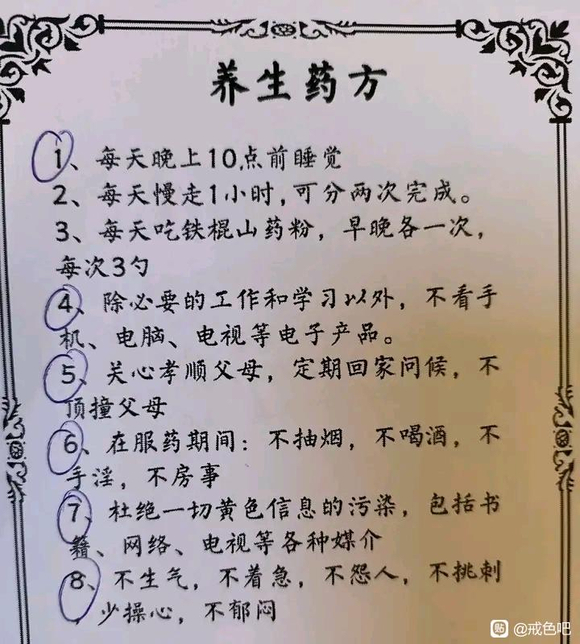 养生药方
1、每天晚上10点前睡觉
2、每天慢走1小时,可分两次完成。
3、每天吃铁棍山药粉，早晚各一次，
每次3勺
4、除必要的工作和学习以外，不看手
机、电脑、电视等电子产品。
5、关心孝顺父母，定期回家问候，不
顶撞父母
6、在服药期间：不抽烟，不喝酒，不
手淫，不房事
7、杜绝一切黄色信息的污染，包括书
籍、网络、电视等各种媒介
8、不生气，不着急，不怨人，不挑刺
，少操心，不郁闷
贴 @戒色吧